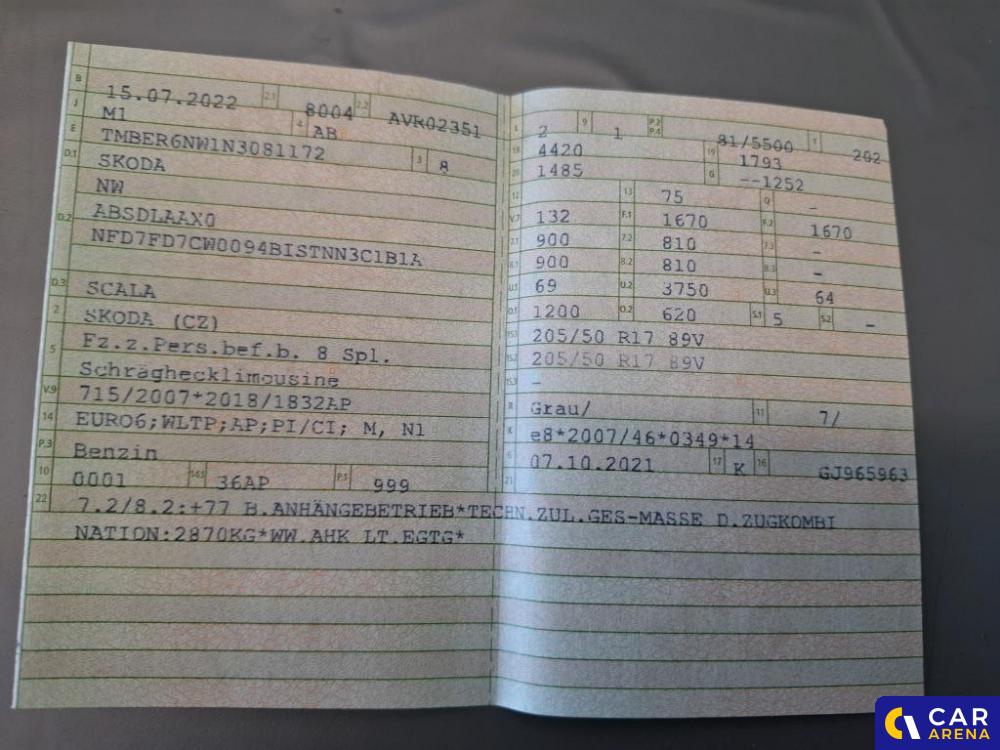 B 15.07.2022 2.1 8004 2.2 AVR02351
J M1 4 AB
E TMBER6NW1N3081172 3 8
D.1 SKODA
NW
D.2 ABSDLAAX0
NFD7FD7CW0094BISTNN3C1B1A
D.3 SCALA
2 SKODA (CZ)
5 Fz.z.Pers.bef.b. 8 Spl.
Schräghecklimousine
V.9 715/2007*2018/1832AP
14 EURO6;WLTP;AP;PI/CI; M, N1
P.3 Benzin
10 0001 14.1 36AP P.1 999
L 2 9 1 P.2 P.4 81/5500 T 202
18 4420 19 1793
20 1485 G --1252
12 13 75 Q -
V.7 132 F.1 1670 F.2 1670
7.1 900 7.2 810 7.3 -
8.1 900 8.2 810 8.3 -
U.1 69 U.2 3750 U.3 64
O.1 1200 O.2 620 S.1 5 S.2 -
15.1 205/50 R17 89V
15.2 205/50 R17 89V
15.3 -
R Grau/ 11 7/
K e8*2007/46*0349*14
6 07.10.2021 17 K 16 GJ965963
21
22 7.2/8.2:+77 B.ANHÄNGEBETRIEB*TECHN.ZUL.GES-MASSE D.ZUGKOMBI
NATION:2870KG*WW.AHK LT.EGTG*
CAR
ARENA